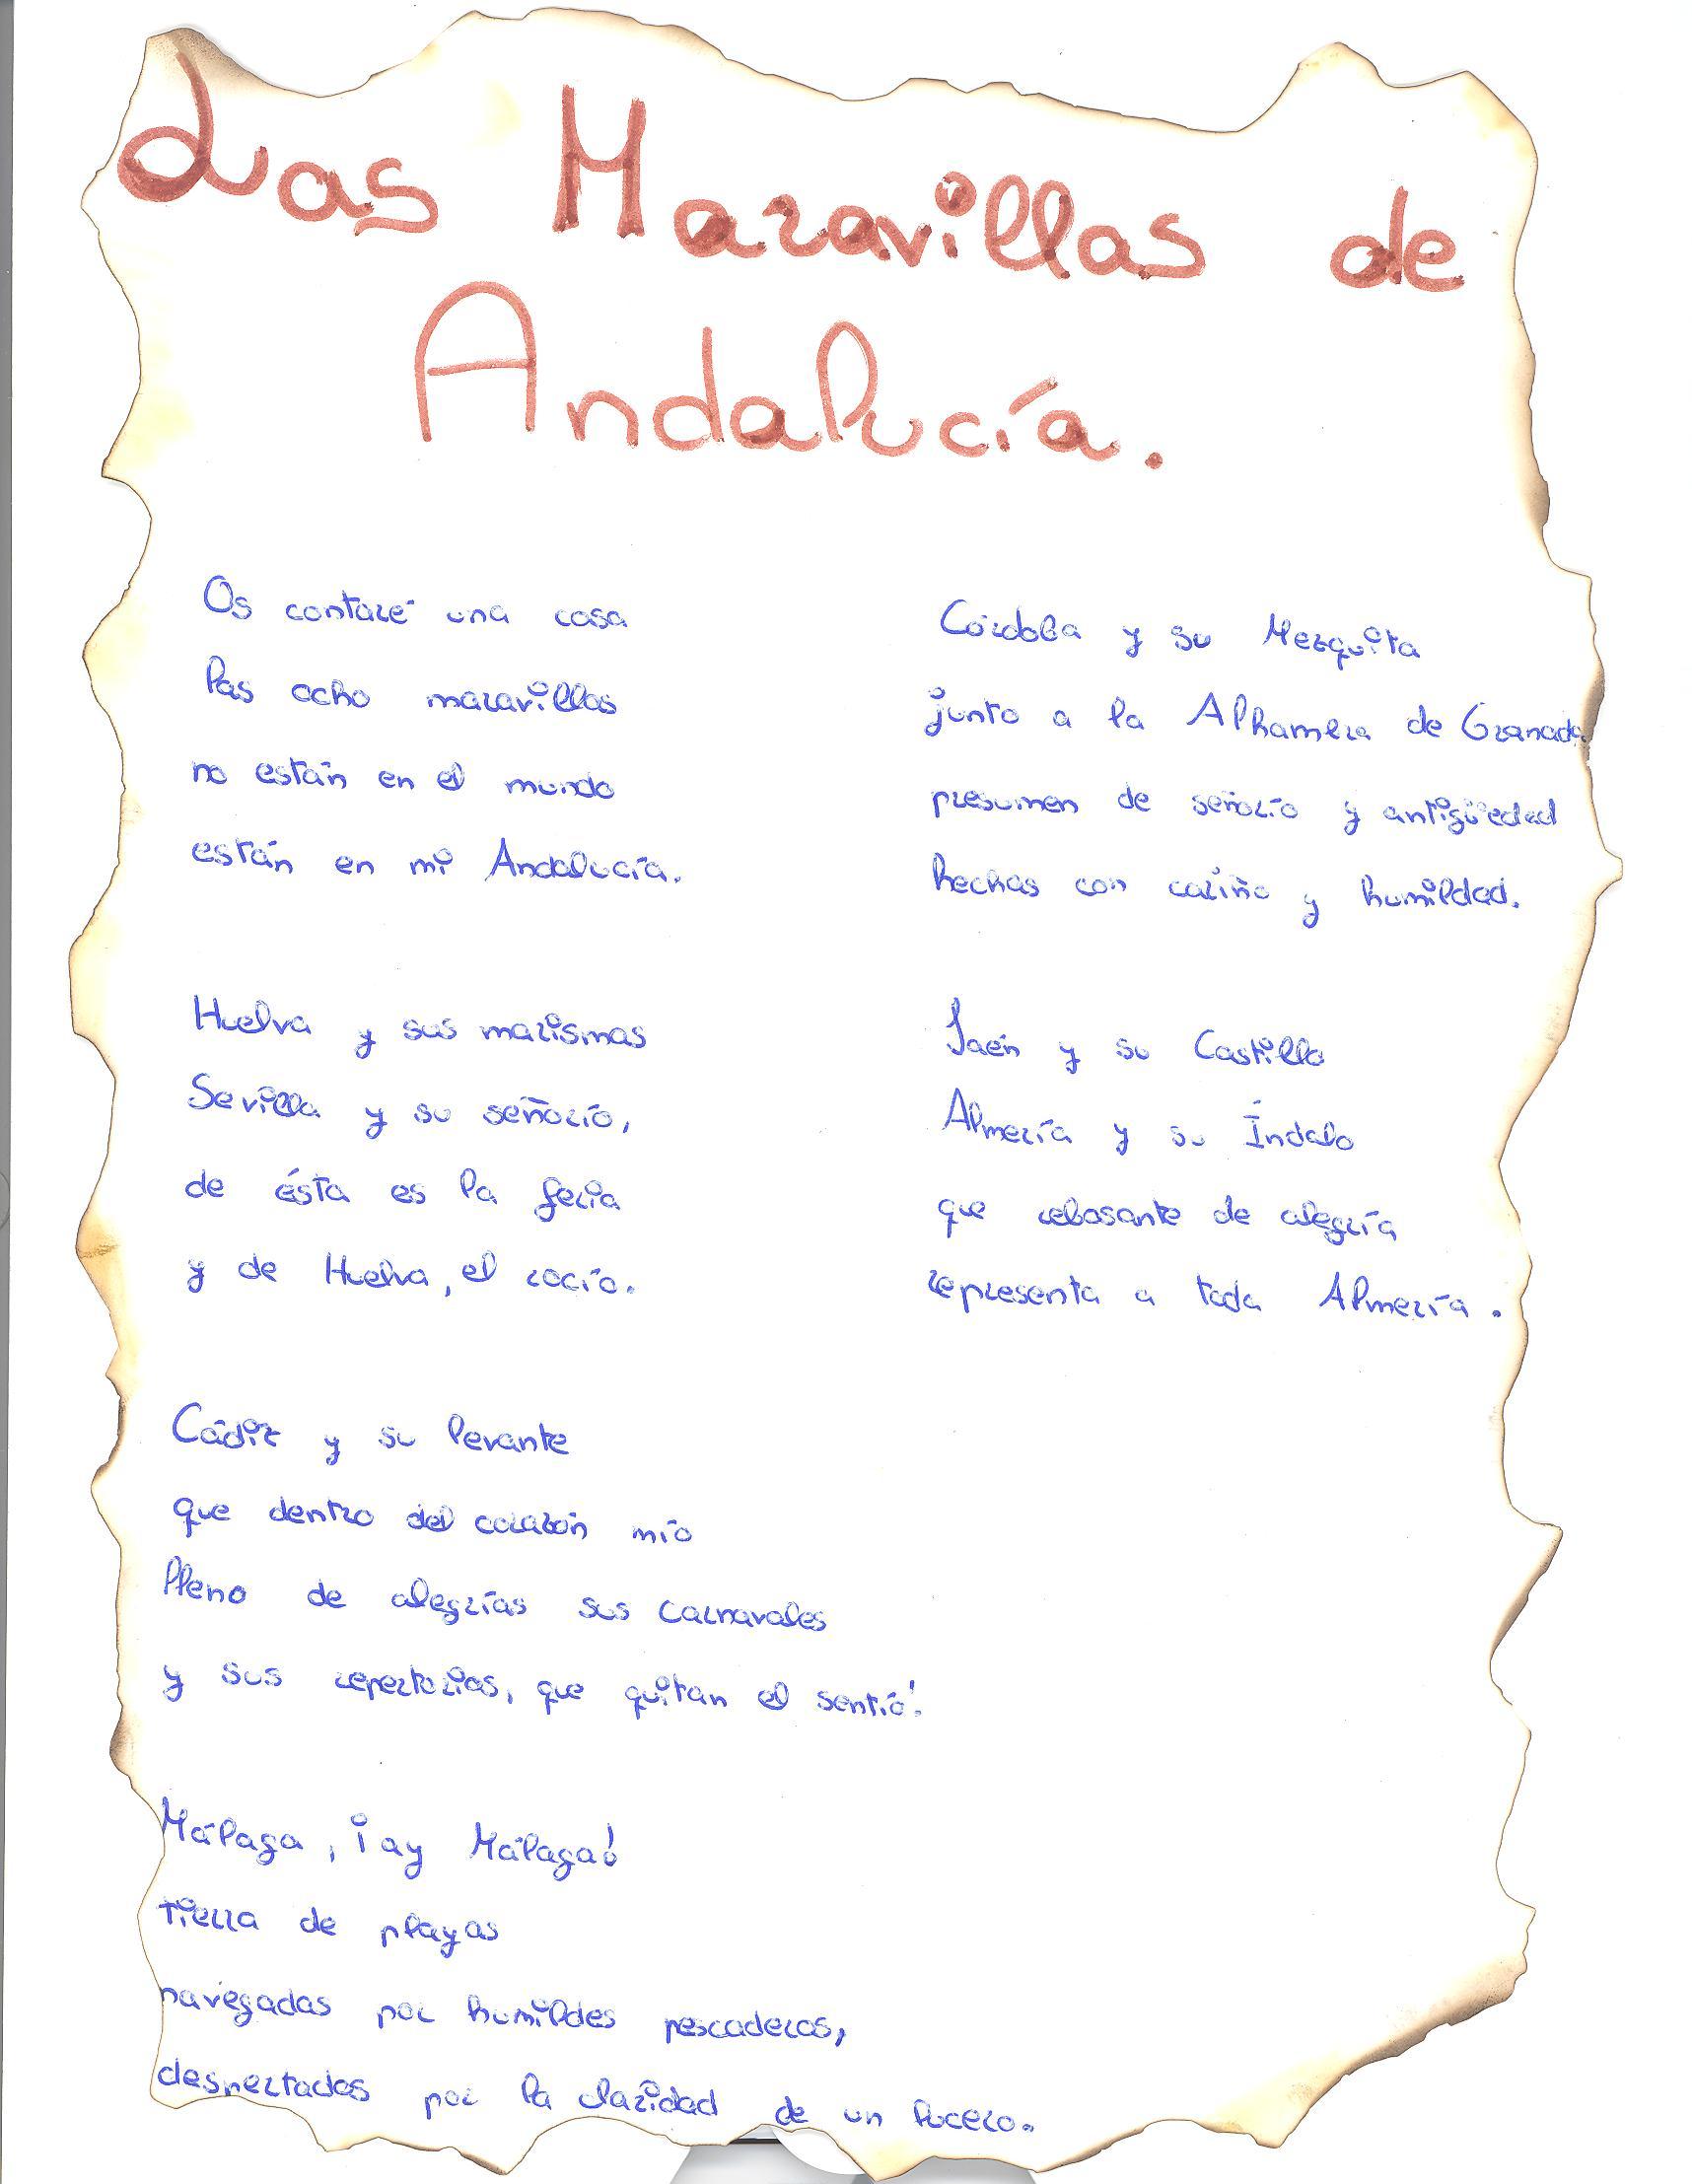 Las Maravillas de
Andalucía.
Os contaré una cosa
las ocho maravillas
no están en el mundo
están en mi Andalucía.
Huelva y sus marismas
Sevilla y su señorío,
de ésta es la feria
y de Huelva, el rocío.
Cádiz y su levante
que dentro del corazón mío
lleno de alegrías sus carnavales
y sus repertorios, que quitan el sentío!
Málaga, ¡ay Málaga!
tierra de playas
navegadas por humildes pescaderos,
despertados por la claridad de un lucero.
Córdoba y su Mezquita
junto a la Alhambra de Granada
presumen de señorío y antigüedad
hechas con cariño y humildad.
Jaén y su Castillo
Almería y su Índalo
que rebosante de alegría
representa a toda Almería.